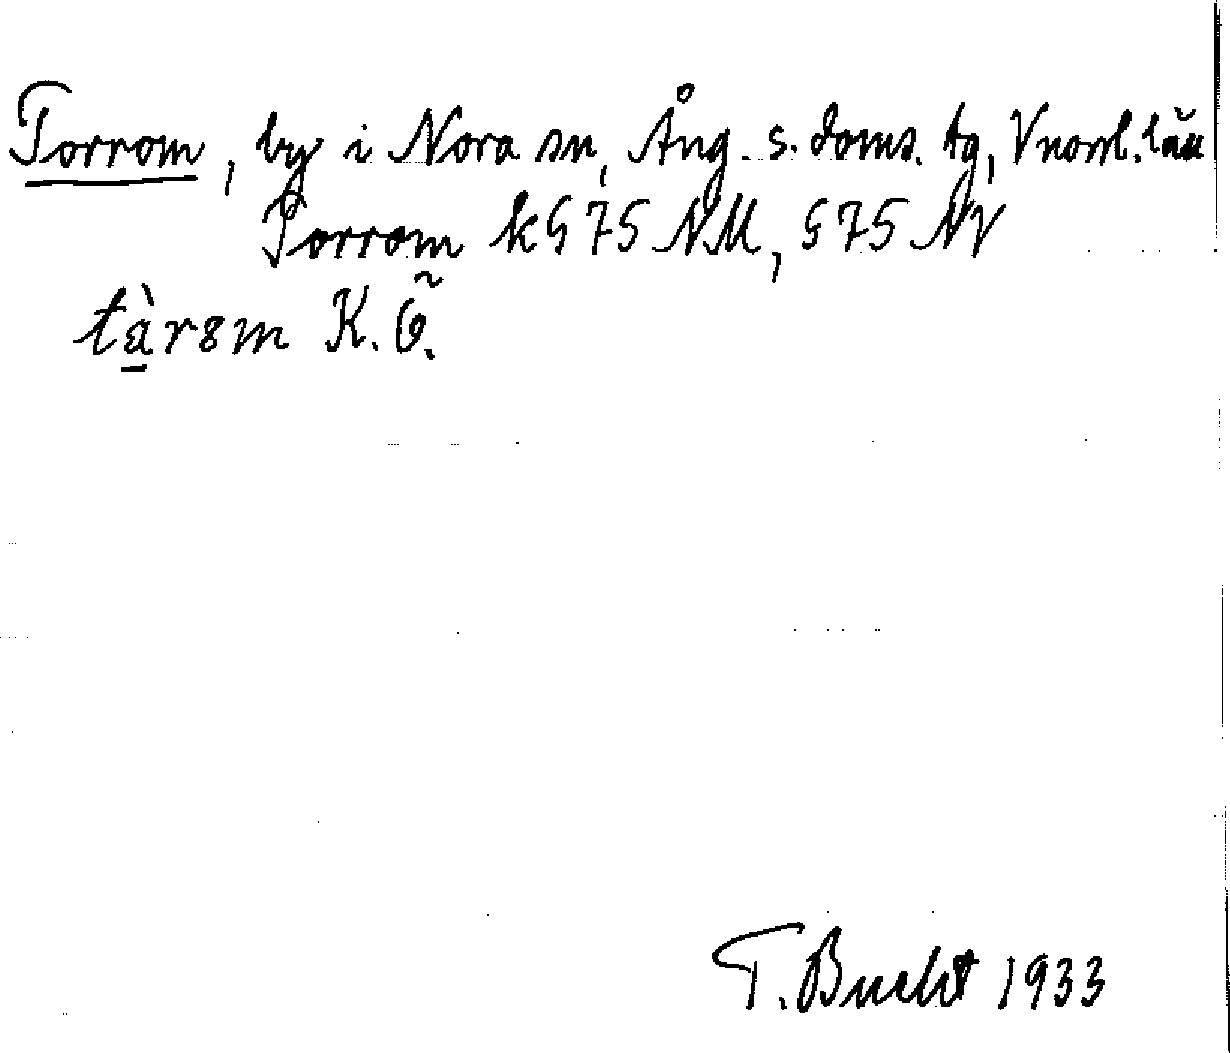 Torrom, by i Nora sn, Ång. s. doms. tg, Vnorrl. län
Torrom k § 75 NM, § 75 NV
tàrom K. Ö.
T. Bucht 1933